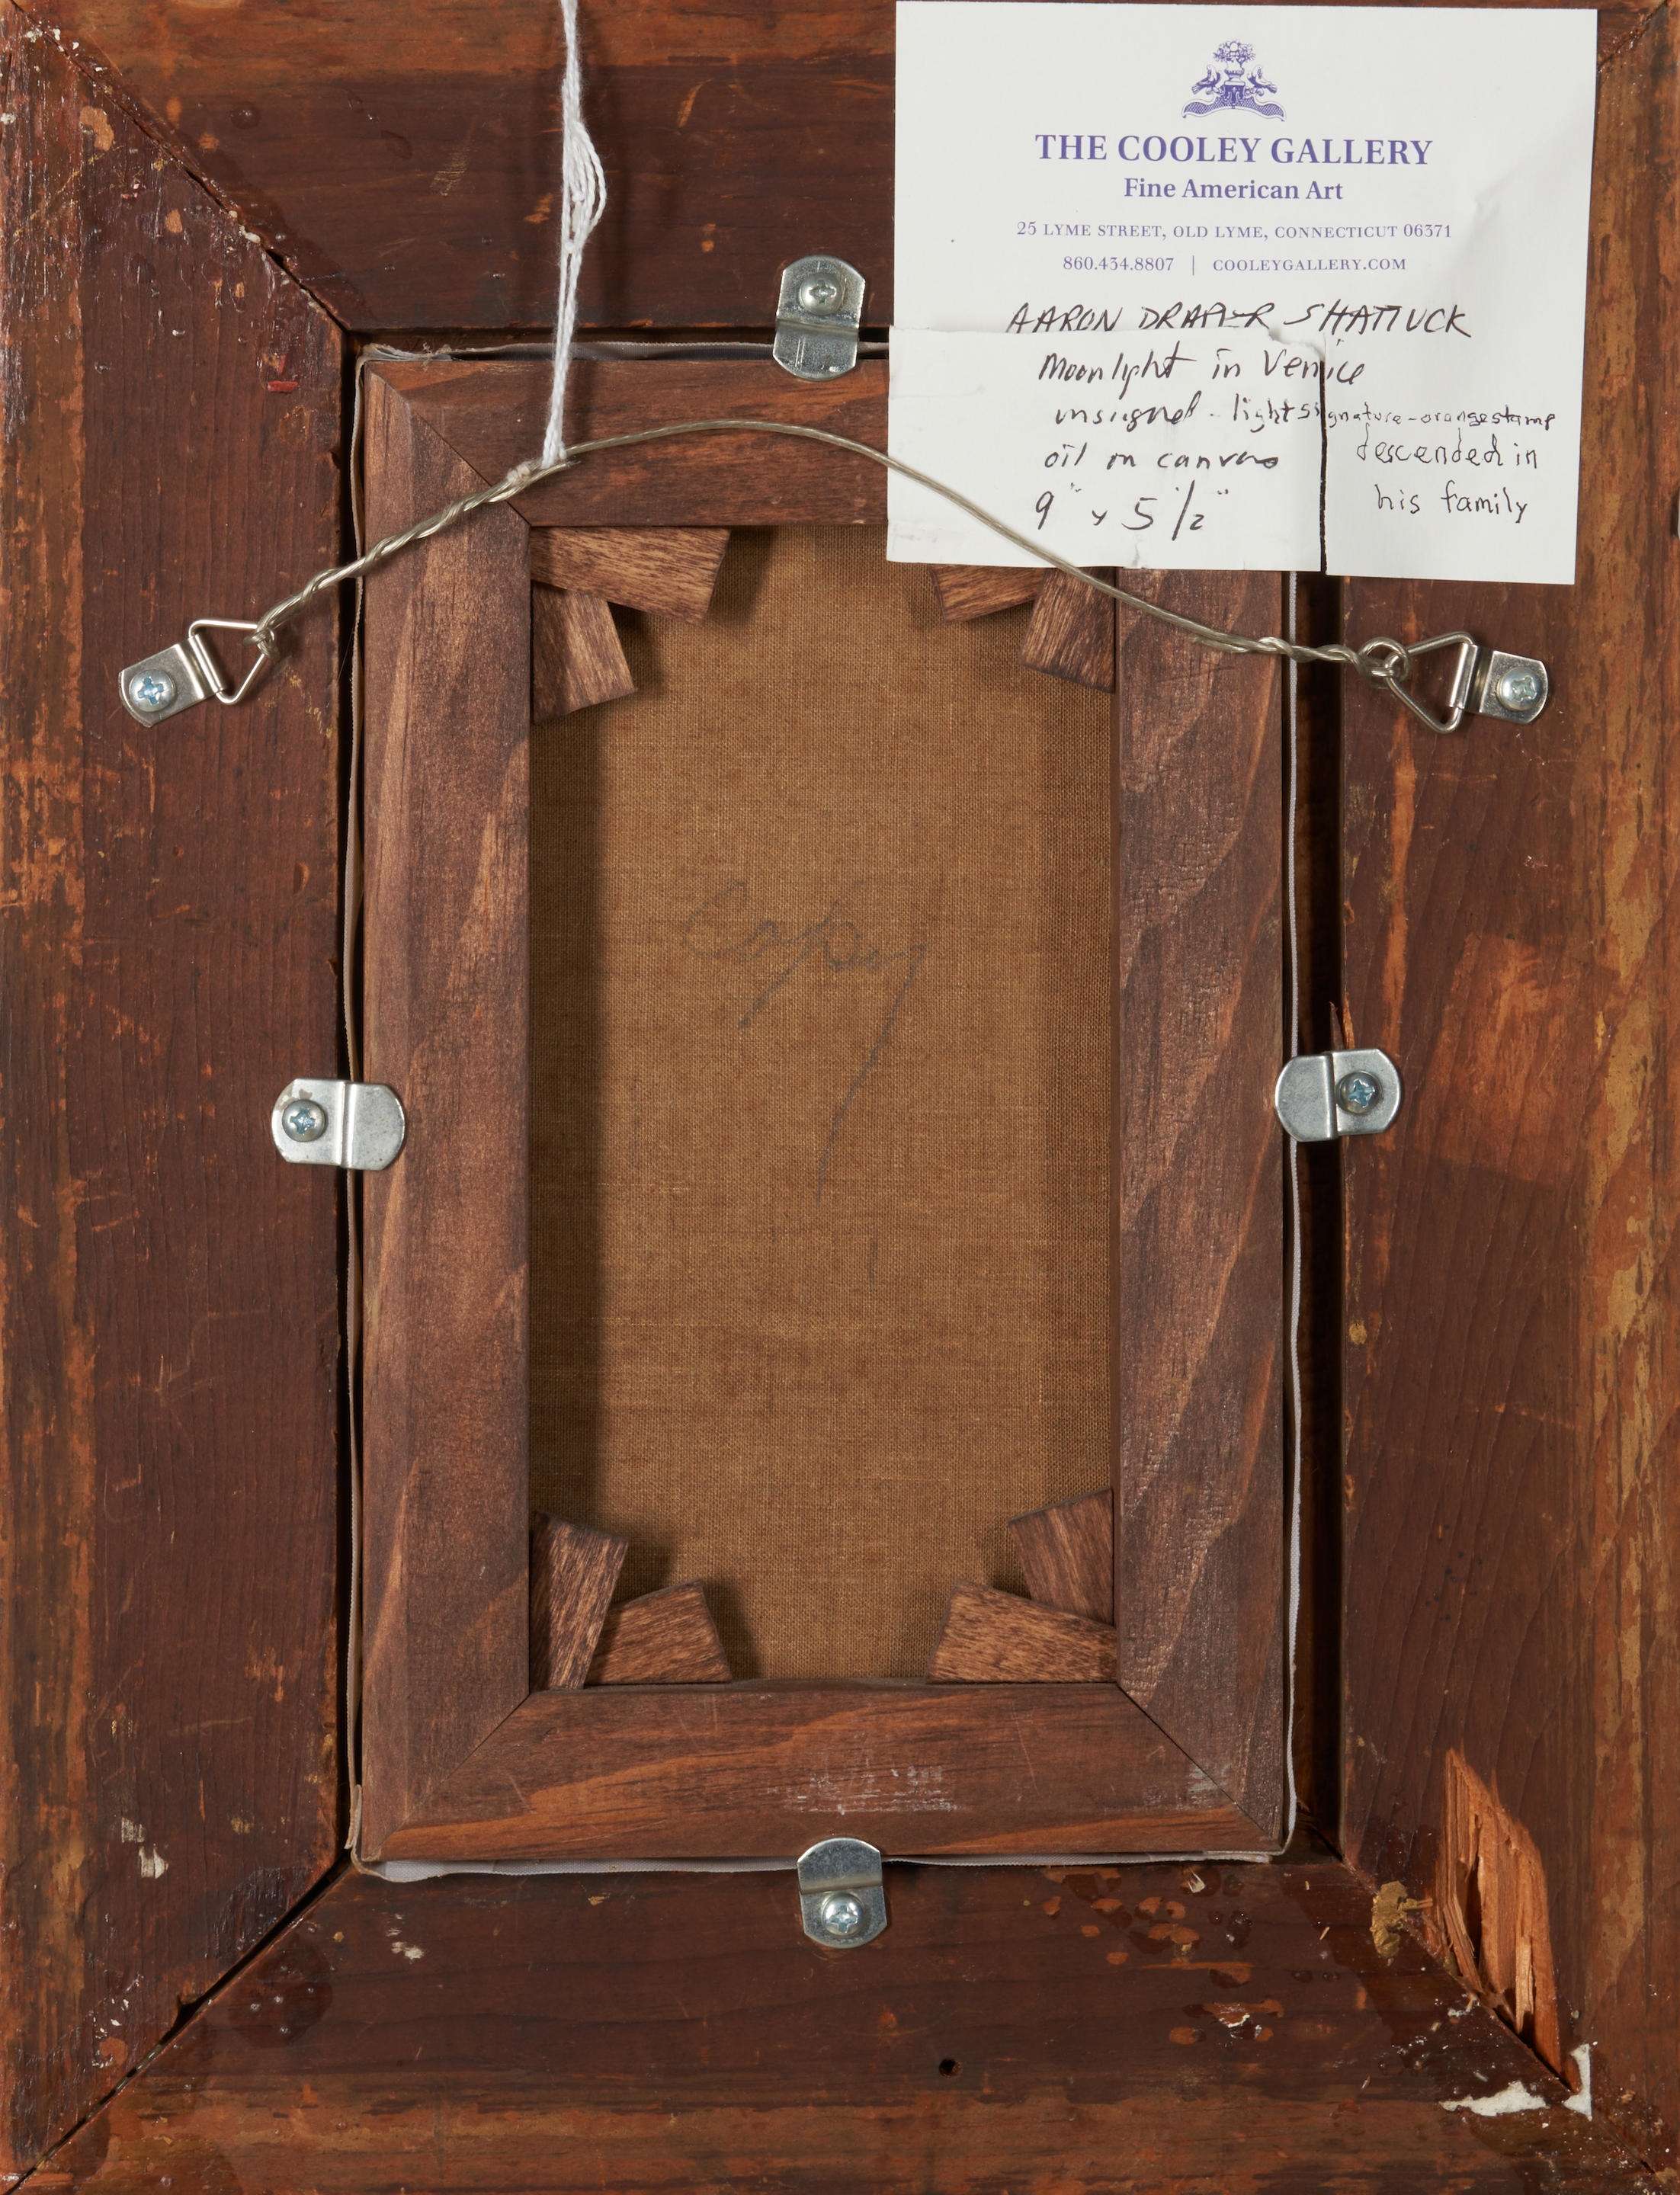 THE COOLEY GALLERY
Fine American Art
25 LYME STREET, OLD LYME, CONNECTICUT 06371
860.434.8807 | COOLEYGALLERY.COM
AARON DRAPER SHATTUCK
Moonlight in Venice
unsigned - light signature - orange stamp
oil on canvas
descended in
9" x 5 1/2"
his family
Copy